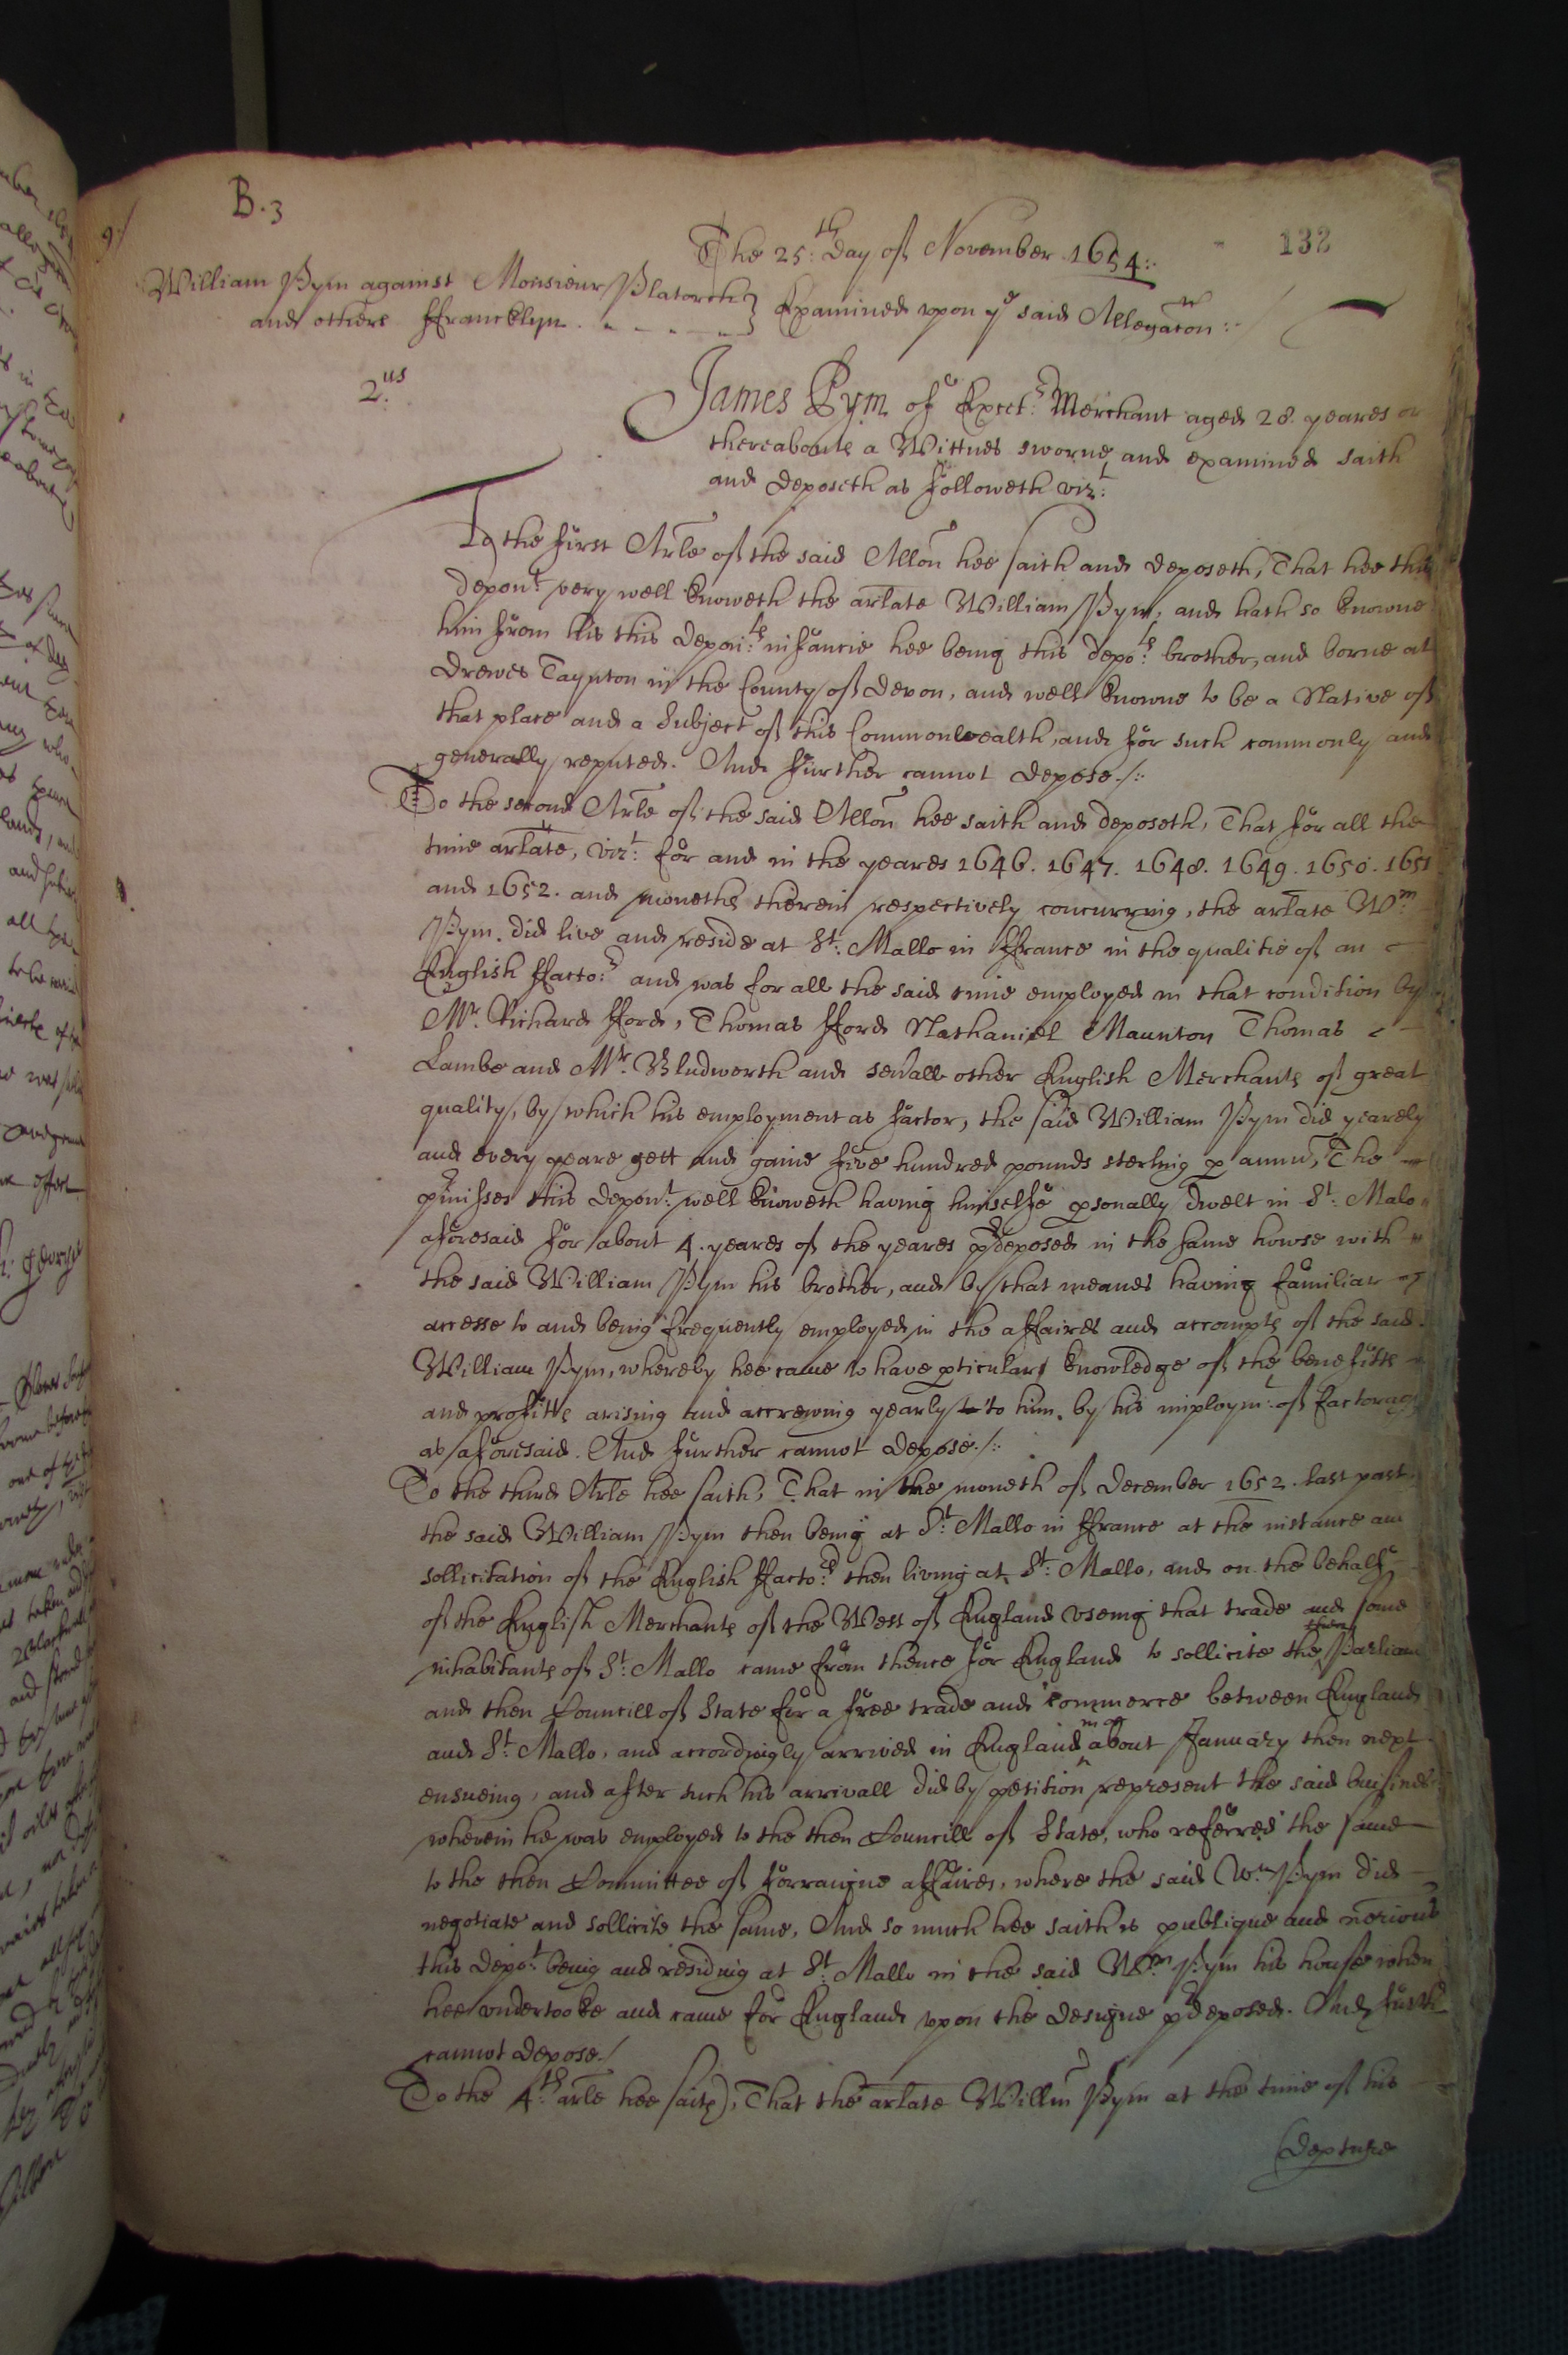 B.3
9:/
132
The 25:th Day of November 1654::
William Pym against Monsieur Platorch}
and others ffrancklyn . . - . - . -} Examined vpon ye said Allegacon::
2.us
James Pym of Exect:r Merchant aged 28. yeares or
thereabouts a Wittnes sworne and examined saith
and deposeth as followeth vizt:
To the first Arle of the said Allon hee saith and deposeth, That hee this
depont very well knoweth the arlate William Pym, and hath so knowne
him from his this depon:ts infancie hee being this depo:ts brother, and borne at
Drewes Taynton in the County of Devon, and well knowne to be a Native of
that place and a Subject of this Commonwealth, and for such commonly and
generally reputed. And further cannot depose./::
To the second Arle of the said Allon hee saith and deposeth, That for all the
time arlate, vizt: for and in the yeares 1646. 1647. 1648. 1649. 1650. 1651
and 1652. and moneths therein respectively concurring, the arlate Wm
Pym. did live and reside at St: Mallo in ffrance in the qualitie of an
English ffacto:r and was for all the said time employed in that condition by
Mr. Richard fford, Thomas fford Nathaniel Maunton Thomas
Lambe and Mr. Bludworth and seuall other English Merchants of great
quality, by which his employment as factor, the said William Pym did yearely
and every yeare gett and gaine five hundred pounds sterling p annu, The
pmisses this depont: well knoweth having himselfe psonally dwelt in St: Malo
aforesaid for about 4. yeares of the yeares pdeposed in the same howse with
the said William Pym his brother, and by that meanes having familiar
accesse to and being frequently employed in the affaires and accompts of the said
William Pym, whereby hee came to have pticular knowledge of the benefitts
and profitts arising and accrewing yearly to to him. by his imploymt: of factorag
as aforesaid. And further cannot depose./::
To the third Arle hee saith, That in the moneth of December 1652. last past
the said William Pym then being at St: Mallo in ffrance at the instance an
sollicitation of the English ffacto:rs then living at St: Mallo, and on the behalfe
of the English Merchants of the West of England vseing that trade and some
inhabitants of St: Mallo came from thence for England to sollicite the then Parliam
and then Councill of State for a free trade and commerce between England
and St: Mallo, and accordingly arrived in England in or about January then next
ensueing, and after such his arrivall did by petition represent the said buisines
wherein he was employed to the then Councill of State, who referred the same
to the then Committee of forraigne affaires, where the said Wm Pym did
negotiate and sollicite the same, And so much hee saith is publique and notious
this depo:t being and residing at St: Mallo in the said Wm: Pym his house when
hee vndertooke and came for England vpon the designe pdeposed. And furth
cannot depose./
To the 4:th arle hee saith, That the arlate Willm Pym at the time of his
depture